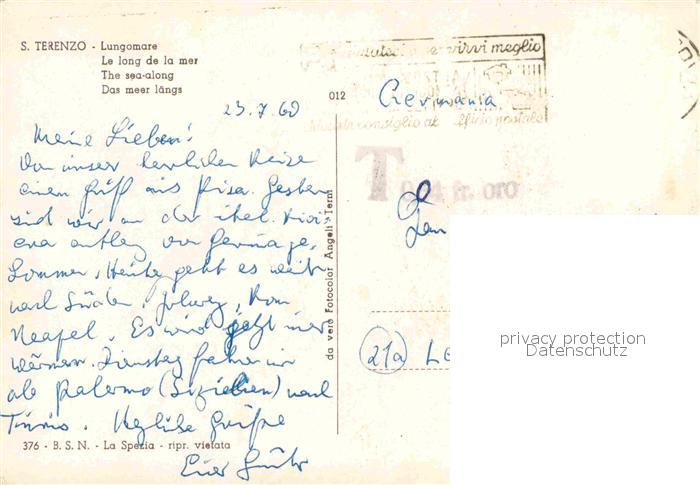 S. TERENZO - Lungomare
Le long de la mer
The sea-along
Das meer längs
23.7.60
012
Germania
Meine Lieben!
Von unser herrlichen Reise
einen Gruß aus Pisa. Gestern
sind wir an der ital. Rivi-
era entlang von Genua ge-
kommen. Heute geht es weiter
nach Süden, Rom
Neapel. Es wird jetzt immer
wärmer. Dienstag fahren wir
ab Palermo (Sizilien) nach
Tunis. Herzliche Grüße
Euer
da vera Fotocolor Angeli - Terni
servirvi meglio
ufficio postale
T
fr. oro
(21a) LE
privacy protection
Datenschutz
376 - B. S. N. - La Spezia - ripr. vietata